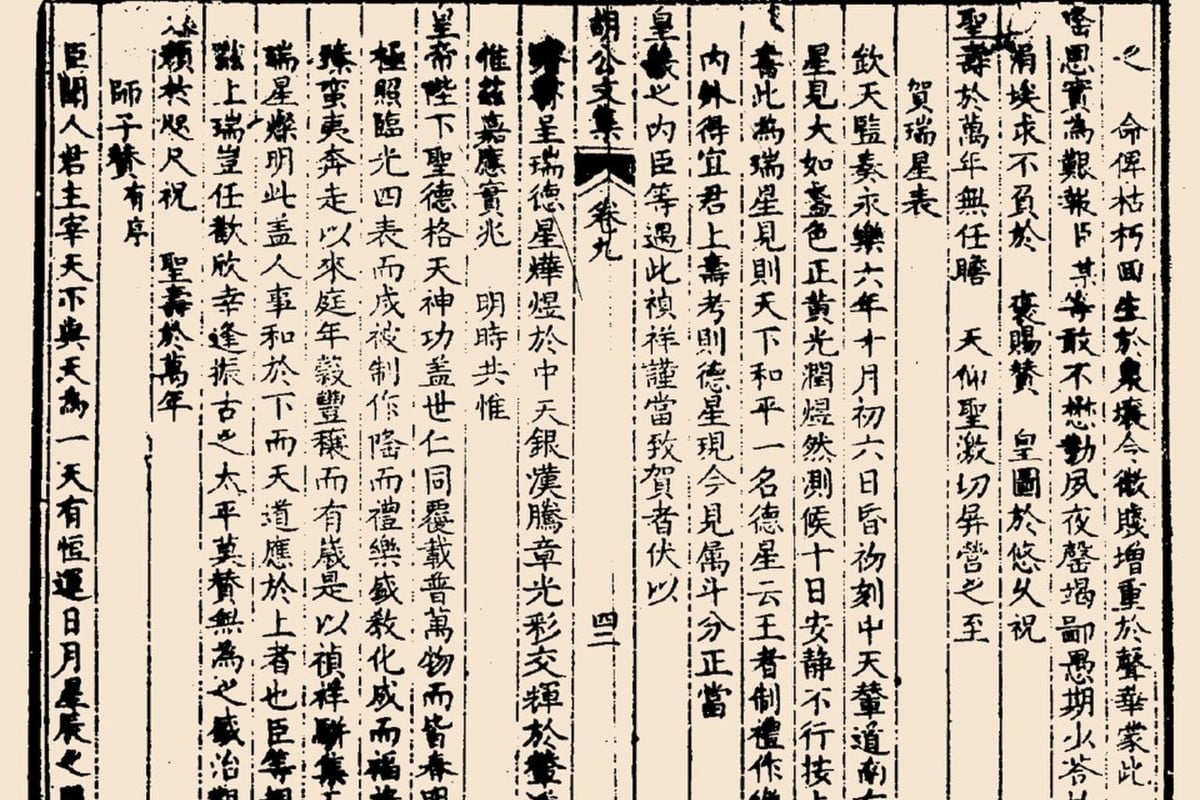 之　命俾枯朽回生於泉壤今微賤增重於聲華蒙此
密思實為艱報臣某等敢不懋勤夙夜罄竭鄙愚期少答
涓埃求不負於　褒賜贊　皇圖於悠久祝
聖壽於萬年無任瞻　天仰聖激切屏營之至
賀瑞星表
欽天監奏永樂六年十月初六日昏初刻中天輦道南有
星見大如盞色正黃光潤煜然測候十日安靜不行按占
書此為瑞星見則天下和平一名德星云王者制禮作樂
內外得宜君上壽考則德星現今見属斗分正當
皇之内臣等遇此禎祥謹當致賀者伏以
胡公文集
卷九
四二
呈瑞德星燁煜於中天銀漢騰章光彩交輝於輦
惟兹嘉應實兆　明時共惟
皇帝陛下聖德格天神功盖世仁同覆載普萬物而皆春明
極照臨光四表而咸被制作隆而禮樂盛教化成而福
蠻夷奔走以來庭年穀豐穰而有歲是以禎祥駢集
瑞星燦明此盖人事和於下而天道應於上者也臣等
兹上瑞豈任歡欣幸逢振古之太平莫贊無為之盛治
顏於咫尺祝　聖壽於萬年
師子贊有序
臣聞人君主宰天下與天為一天有恒運日月星辰之